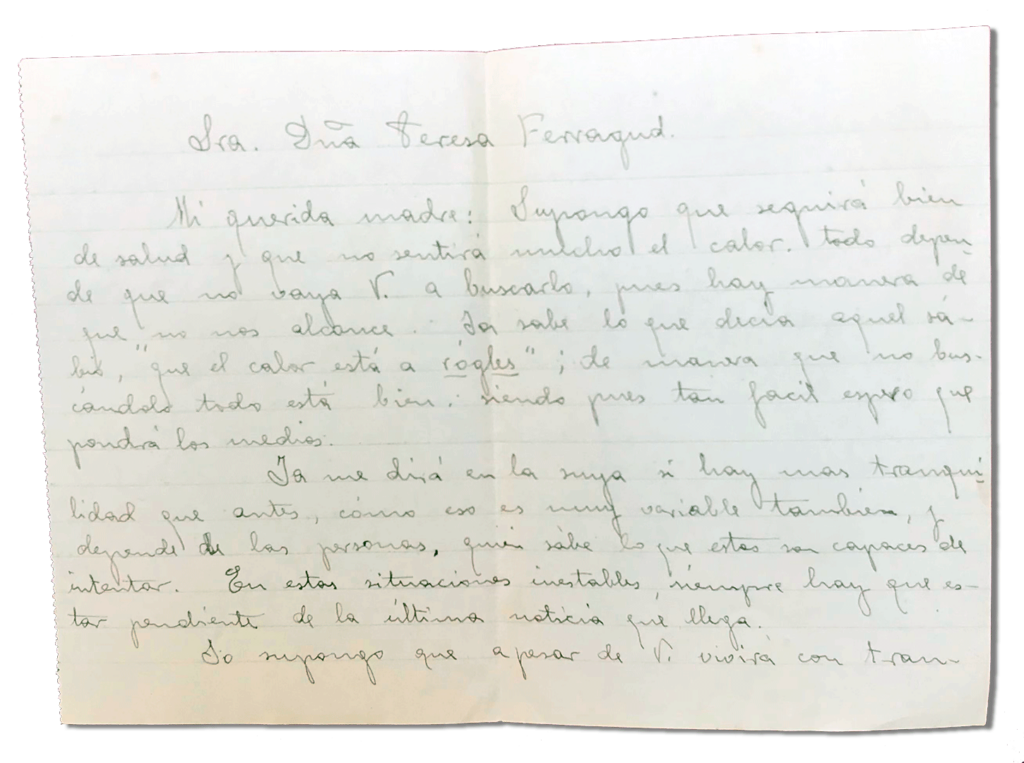 Sra. Dña Teresa Ferragud.
Mi querida madre: Supongo que seguirá bien
de salud y que no sentirá mucho el calor. todo depen-
de que no vaya V. a buscarlo, pues hay manera de
que no nos alcance. Ya sabe lo que decia aquel sá-
bio, "que el calor está a rógles"; de manera que no bus-
cándolo todo está bien. siendo pues tan facil espero que
pondrá los medios.
Ya me dirá en la suya si hay mas tranqui-
lidad que antes, cómo eso es muy variable también, y
depende de las personas, quién sabe lo que estas son capaces de
intentar. En estas situaciones inestables, siempre hay que es-
tar pendiente de la última noticia que llega.
Yo supongo que apesar de V. vivirá con tran-